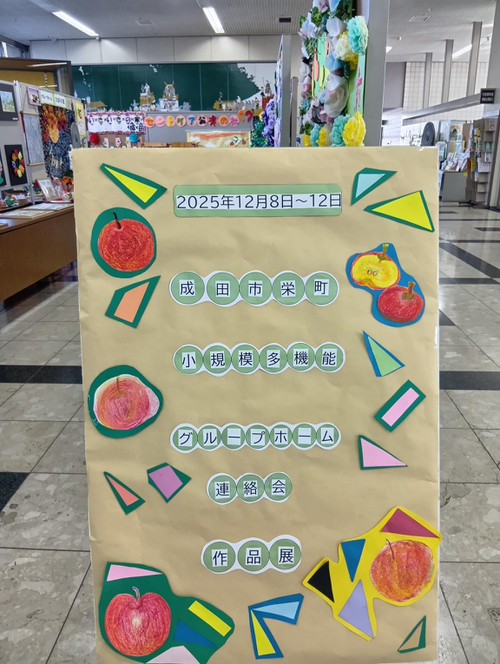 2025年12月8日〜12日
成田市栄町
小規模多機能
グループホーム
連絡会
作品展